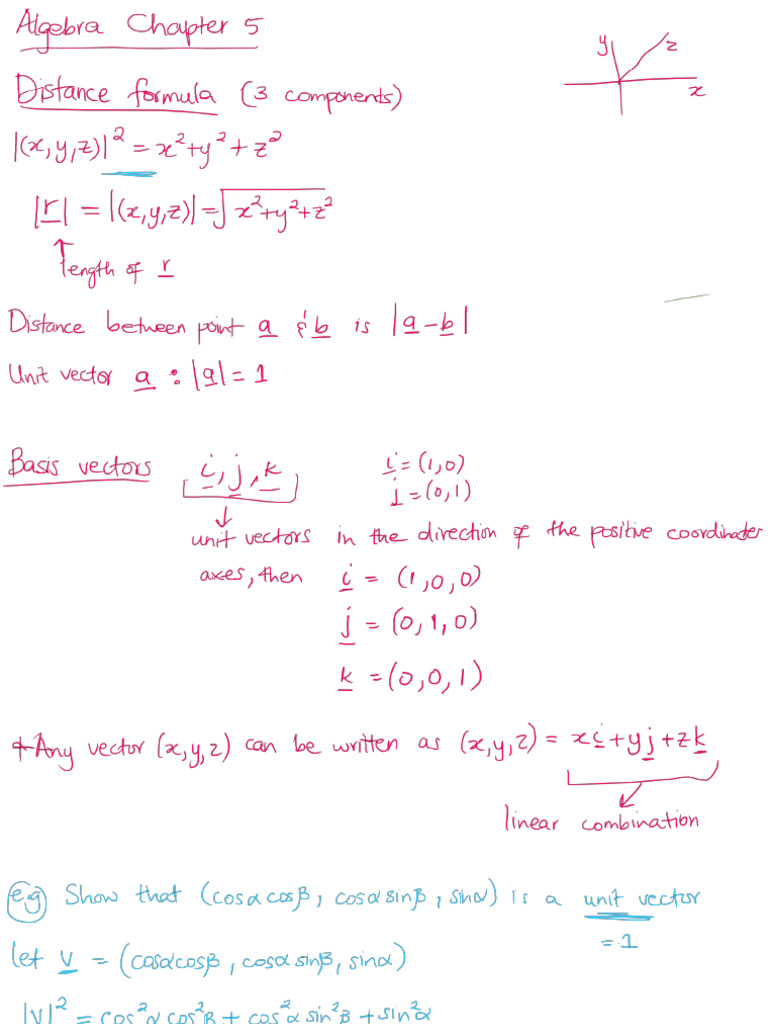 Algebra Chapter 5
y z
x
Distance formula (3 components)
|(x,y,z)|² = x²+y²+z²
|r| = |(x,y,z)| = √x²+y²+z²
↑
length of r
Distance between point a & b is |a-b|
Unit vector a : |a| = 1
Basis vectors i, j, k i = (1,0)
j = (0,1)
↓
unit vectors in the direction of the positive coordinates
axes, then i = (1,0,0)
j = (0,1,0)
k = (0,0,1)
* Any vector (x,y,z) can be written as (x,y,z) = xi+yj+zk
linear combination
e.g Show that (cosαcosβ, cosαsinβ, sinα) is a unit vector
= 1
let v = (cosαcosβ, cosαsinβ, sinα)
|v|² = cos²αcos²β + cos²αsin²β + sin²α